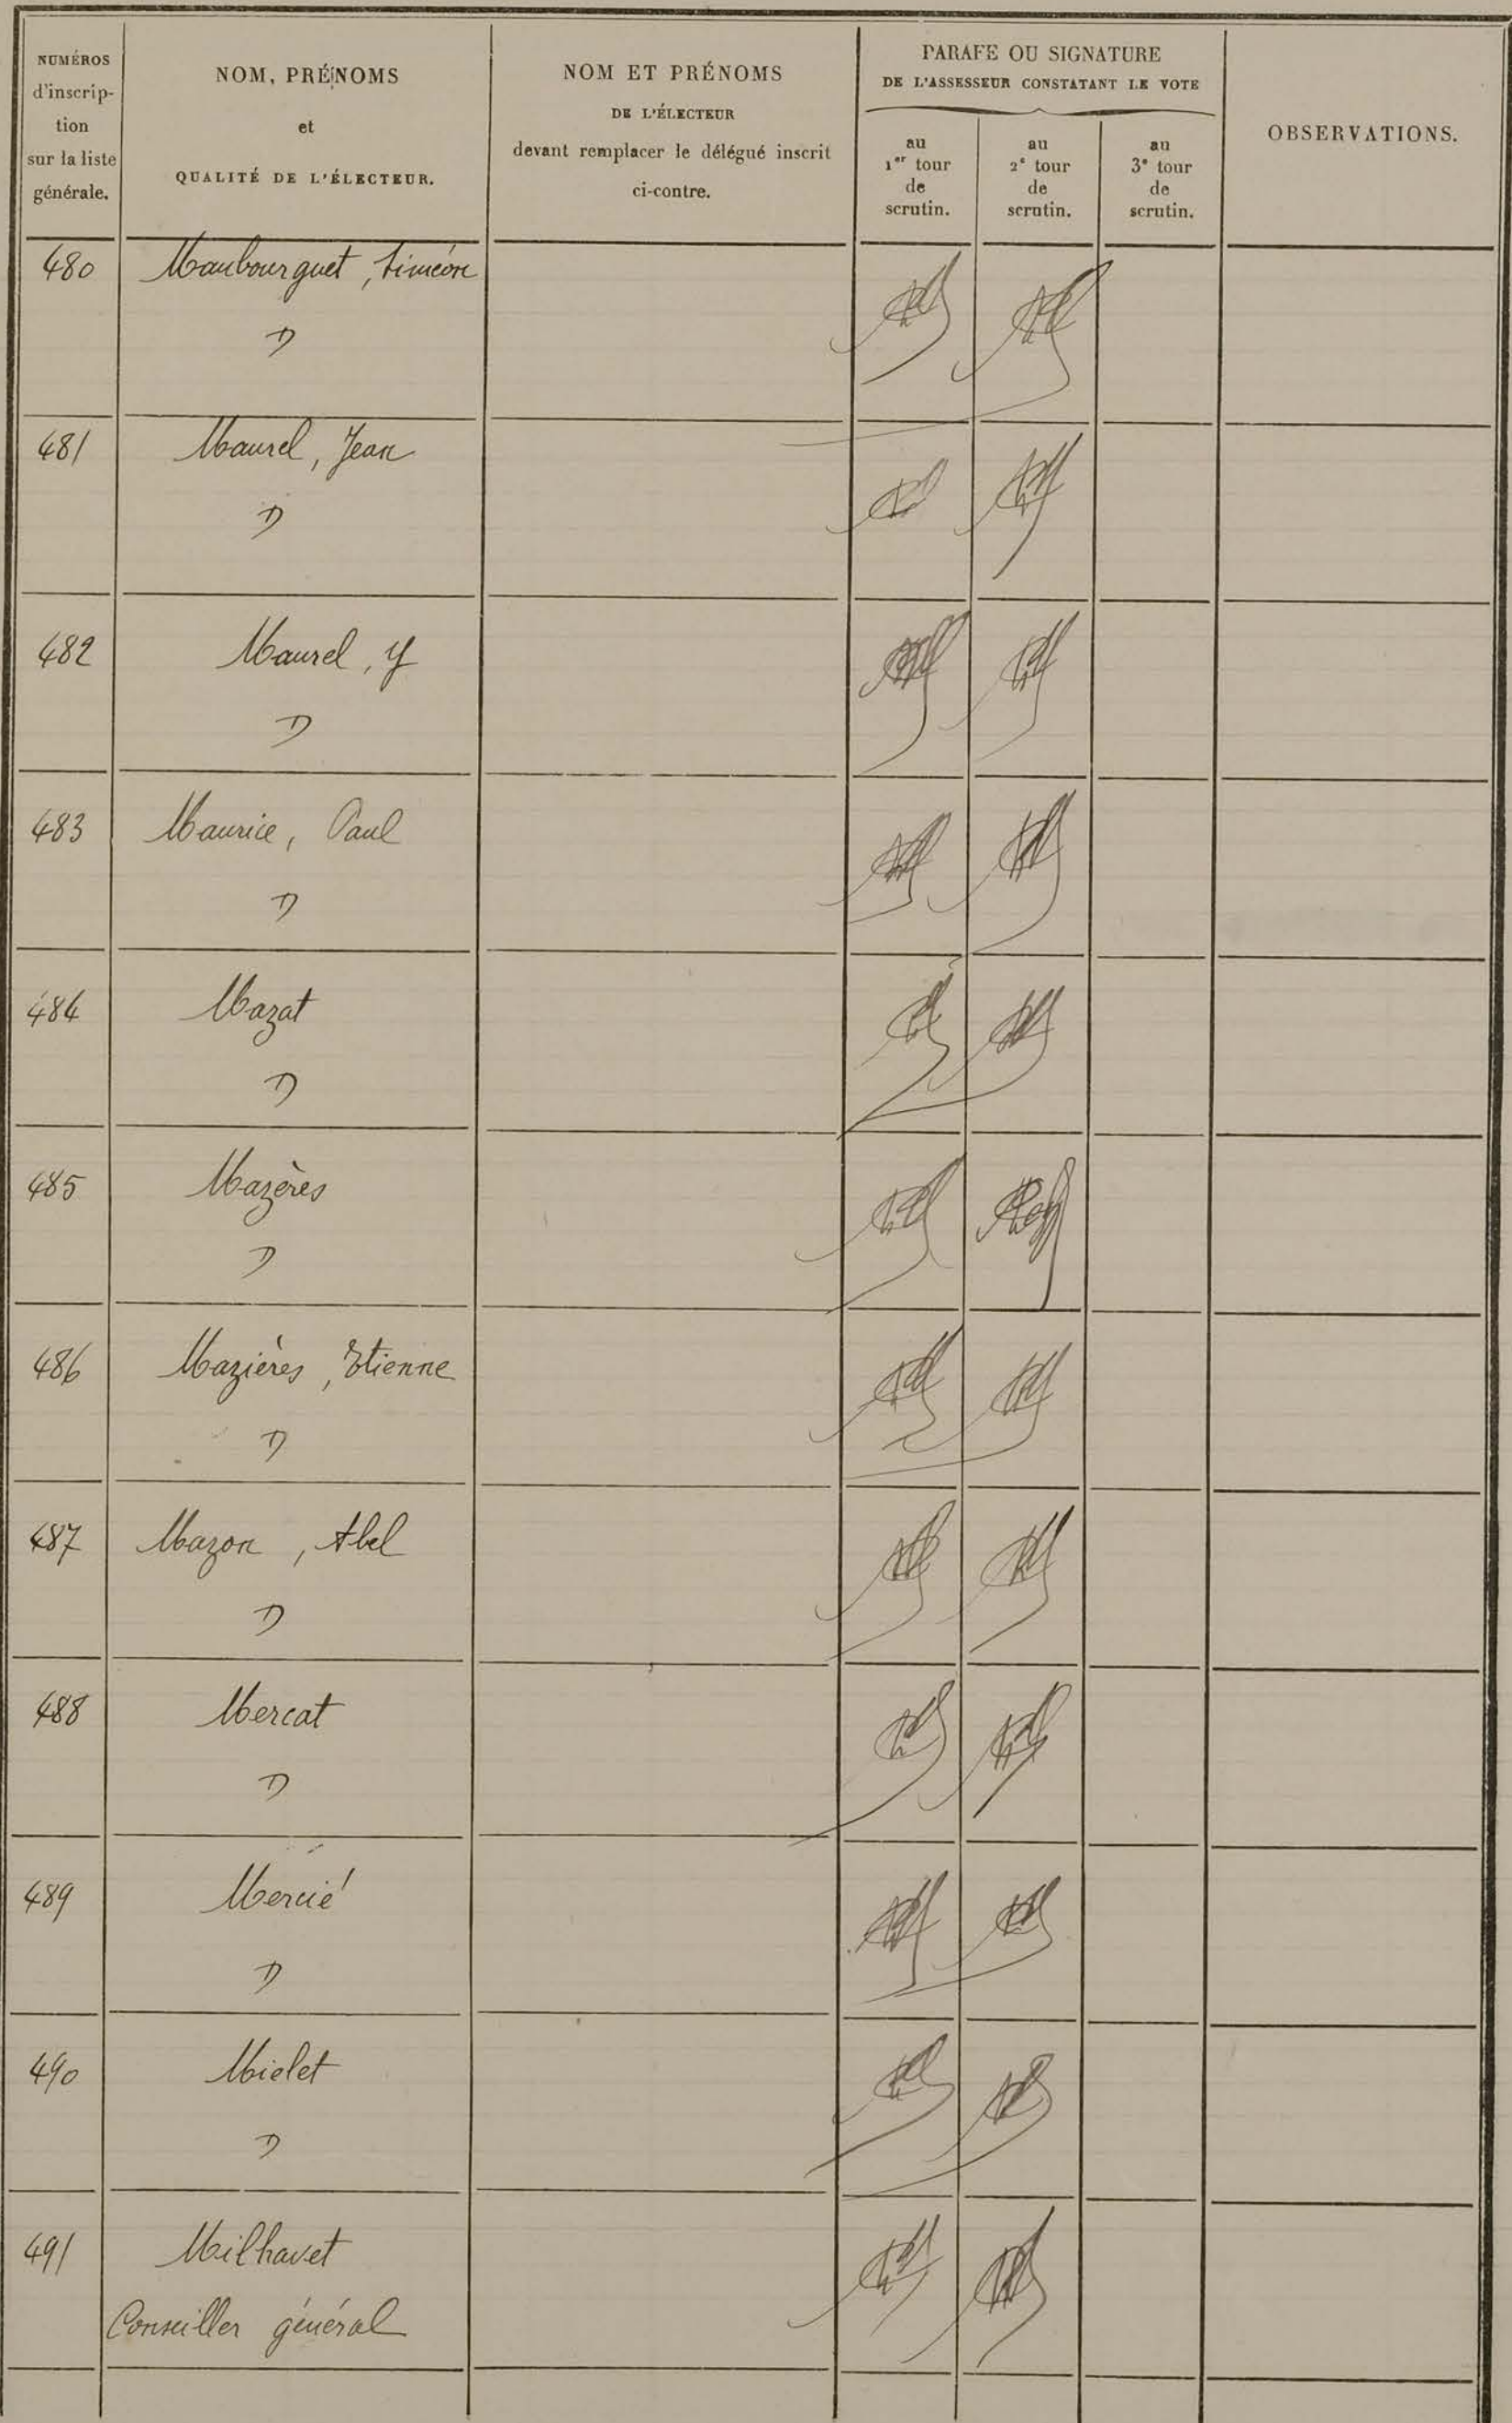 NUMÉROS
d'inscrip-
tion
sur la liste
générale.
NOM, PRÉNOMS
et
QUALITÉ DE L'ÉLECTEUR.
NOM ET PRÉNOMS
DE L'ÉLECTEUR
devant remplacer le délégué inscrit
ci-contre.
PARAFE OU SIGNATURE
DE L'ASSESSEUR CONSTATANT LE VOTE
au
1er tour
de
scrutin.
au
2e tour
de
scrutin.
au
3e tour
de
scrutin.
OBSERVATIONS.
480 Maubourguet, Siméon
D
481 Maurel, Jean
D
482 Maurel, Y
D
483 Maurice, Paul
D
484 Mazat
D
485 Mazères
D
486 Mazières, Etienne
D
487 Mazon, Abel
D
488 Mercat
D
489 Mercié
D
490 Mielet
D
491 Milhavet
Conseiller général